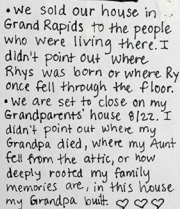 • we sold our house in
Grand Rapids to the people
who were living there. I
didn't point out where
Rhys was born or where Ry
once fell through the floor.
• we are set to close on my
Grandparents' house 8/22. I
didn't point out where my
Grandpa died, where my Aunt
fell from the attic, or how
deeply rooted my family
memories are, in this house
my Grandpa built. ♡♡♡